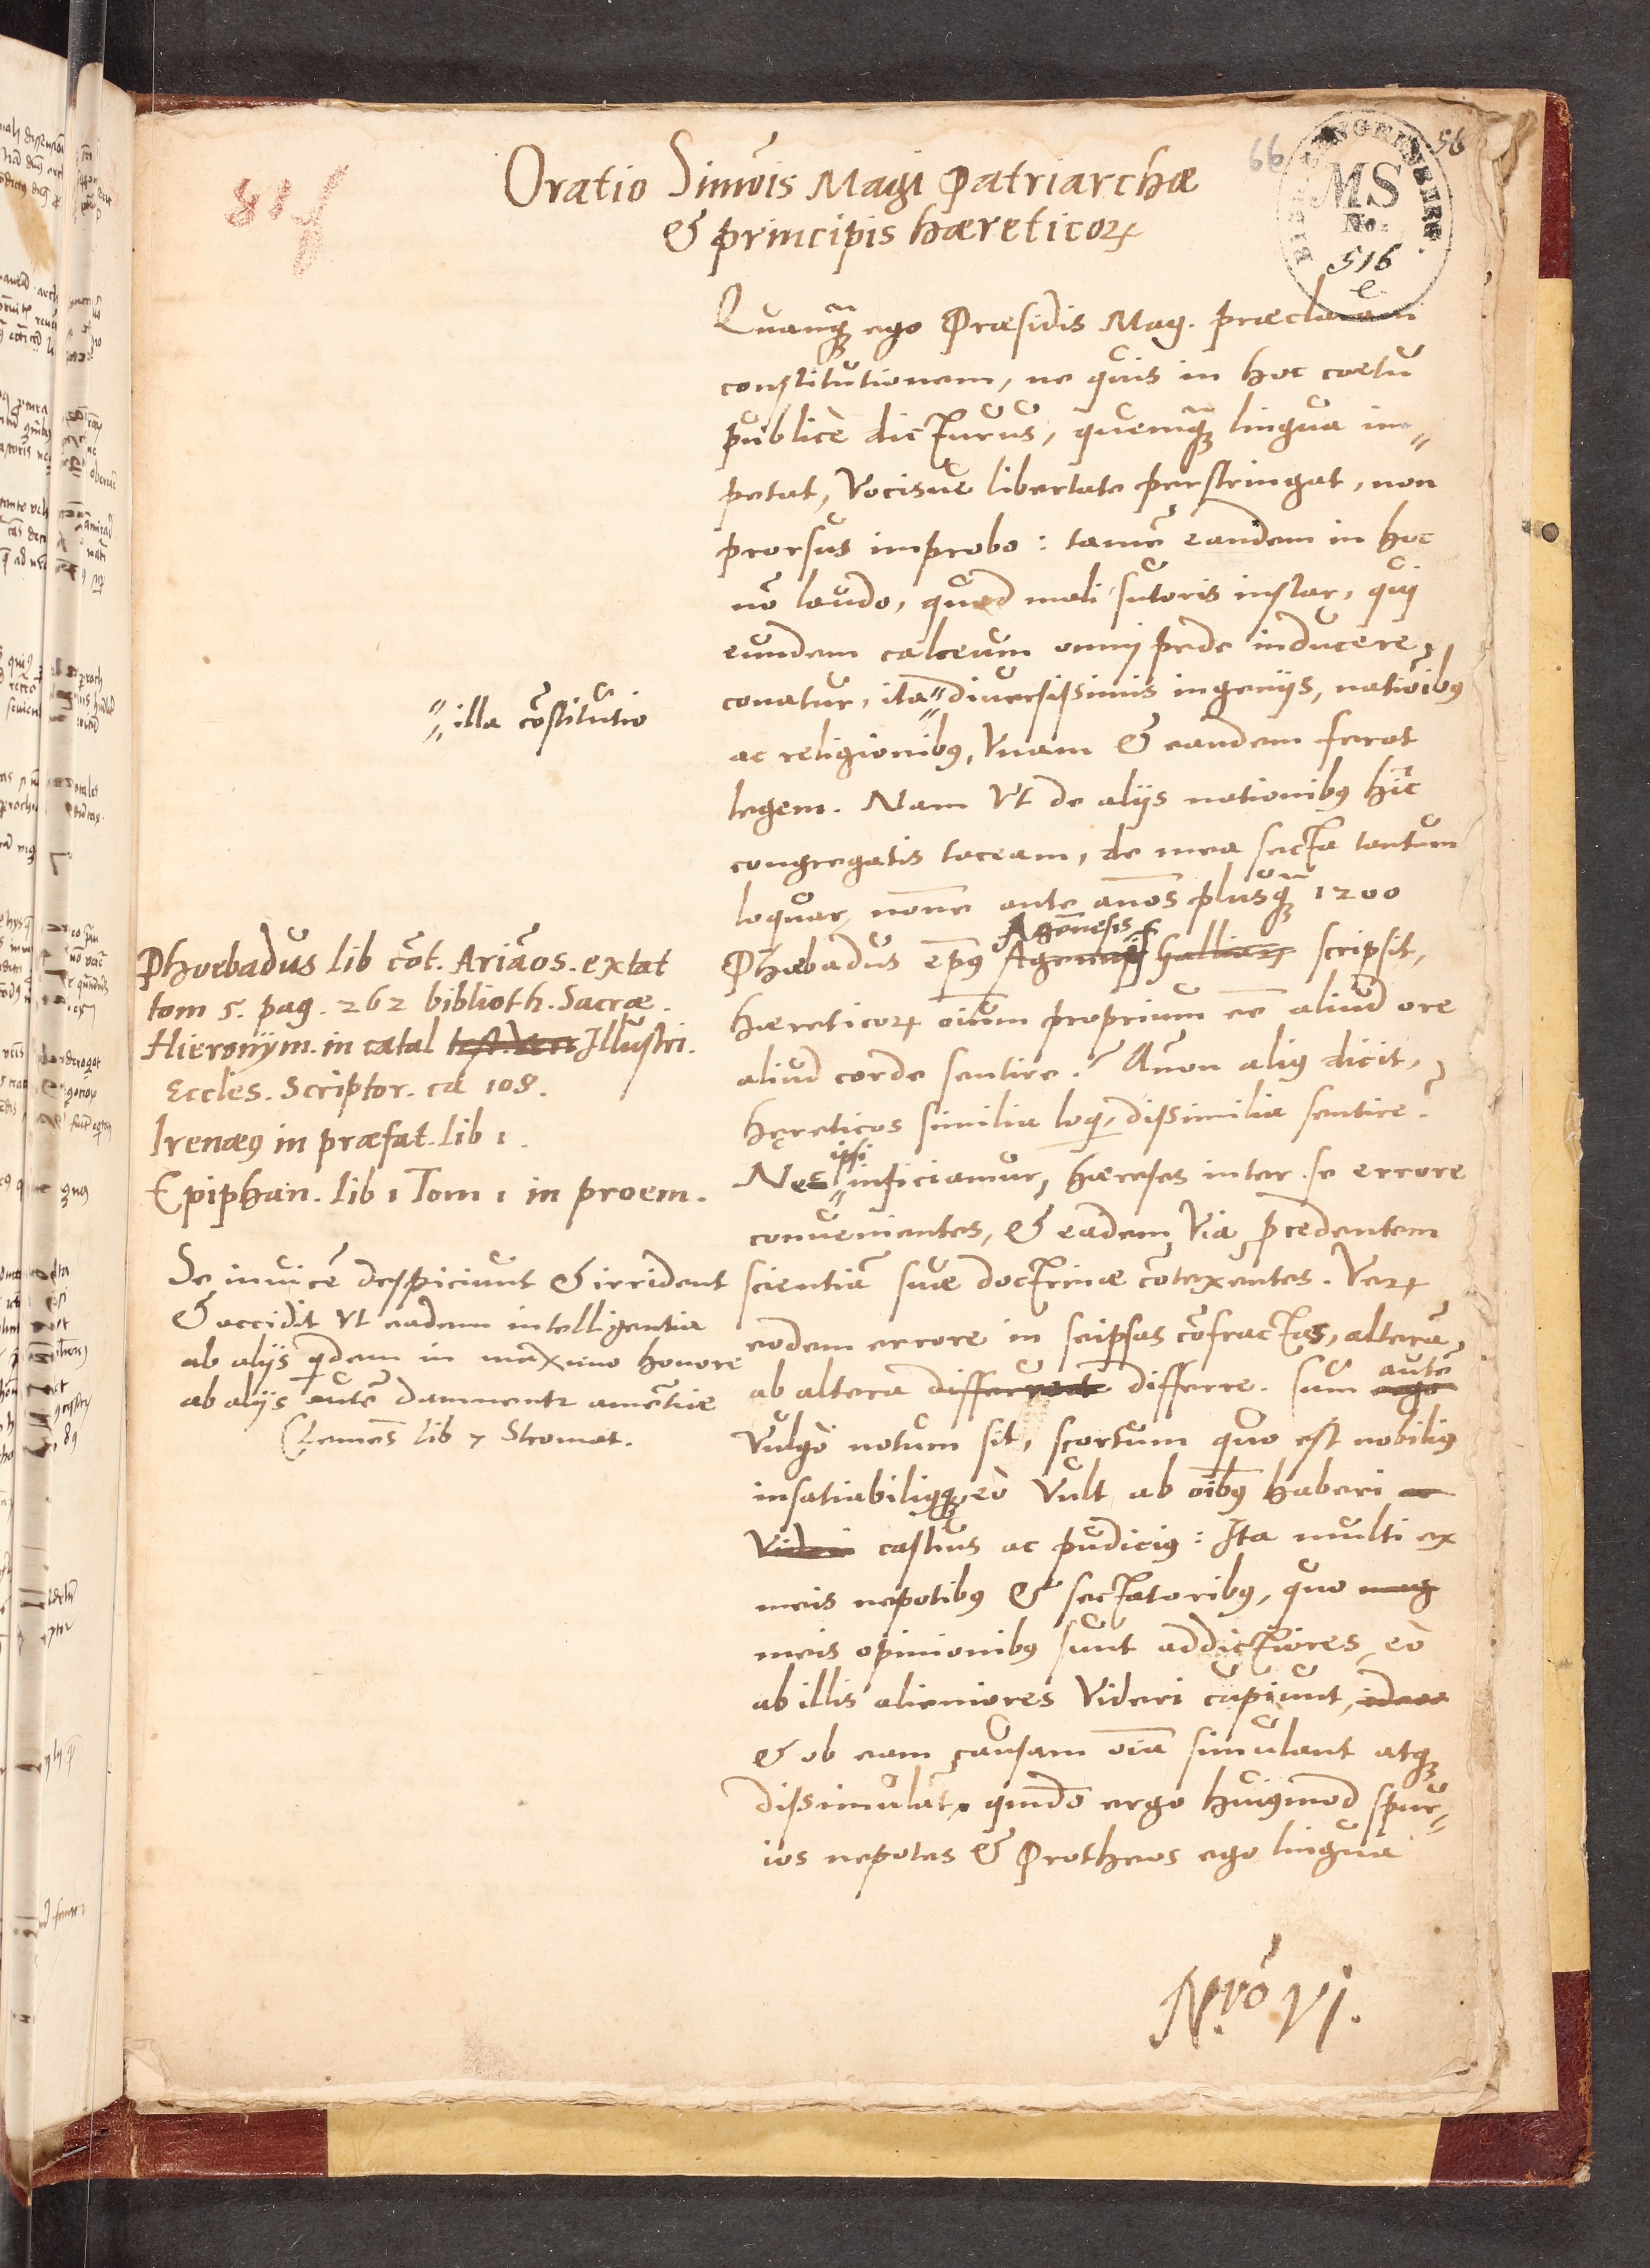 Oratio Simōis Magi Patriarchæ
& principis hæreticoꝝ
66
56
MS
No.
516
e
Quanq̃ȝ ego Præsidis Mag. præclaram
constitutionem, ne quis in hoc coetu
publicè dicturus, quemq̃ȝ lingua im„
petat, vocisue libertate perstringat, non
prorsus improbo: tamē eandem in hoc
nō laudo, quod mali sutoris instar, qui
eundem calceum omnj pede inducere
conatur, ita„ diuersissimis ingenijs, natiōibꝰ
„illa cōstitutio
ac religionibꝰ, vnam & eandem ferat
legem. Nam vt de alijs nationibꝰ hîc
congregatis taceam, de mea secta tantum
loquar, nōne ante an̄os plusq̃ȝ 1200
Phæbadus ep̄ꝰ Agēnesis scripsit,
hæreticoꝝ oīum proprium eē aliud ore
aliud corde sentire? Anon aliꝰ dicit,
hęreticos similia loqi, dissimilia sentire?
Nec ipsi inficiamur, hæreses inter se errore
conuenientes, & eadem via p̄cedentem
scientiā suæ doctrinæ cōtexentes. Veꝝ
eodem errore in seipsas cōfractas, alterā
ab altera differre. Sum autē
vulgò notum sit, scortum quo est nobiliꝰ
insatiabiliꝰqȝ, eò vult ab oībꝰ haberi
castius ac pudiciꝰ: Ita multi ex
meis nepotibꝰ & sectatoribꝰ, quo
meis opinionibꝰ sunt addictiores, eò
ab illis alieniores videri cupiunt,
& ob eam causam oīa simulant atqȝ
dissimulāt. quādo ergo huiꝰmod spur„
ios nepotes & Protheos ego lingua
Phoebadus lib cōt. Ariāos. extat
tom 5. pag. 262 biblioth. Sacræ.
Hieronym. in catal Illustri.
Eccles. Scriptor. ca 108.
Irenæꝰ in præfat. lib 1.
Epiphan. lib 1 Tom 1 in proem.
Se inuicē despiciunt & irrident
& accidit vt eadem intelligentia
ab alijs qidem in maximo honore
ab alijs autē damnentr amētiæ
Clemēs lib 7 Stromat.
Nrò VI.